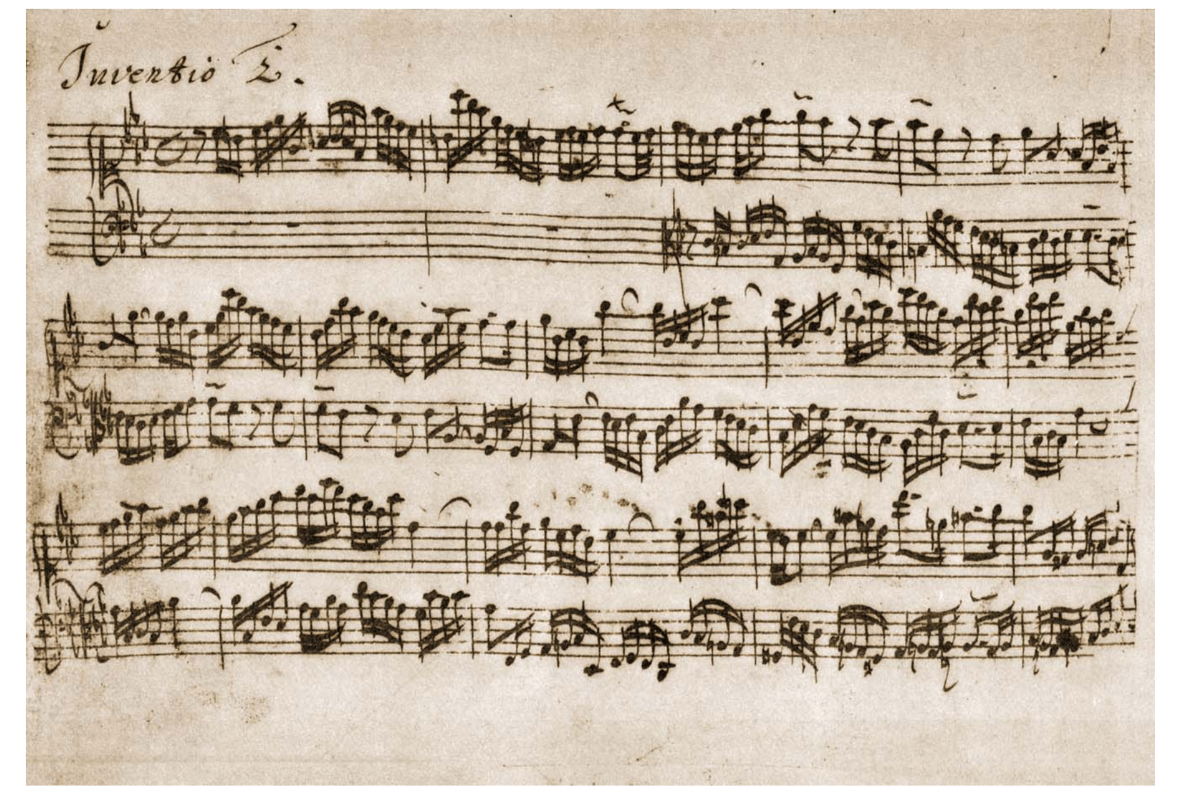 Inventio 2.